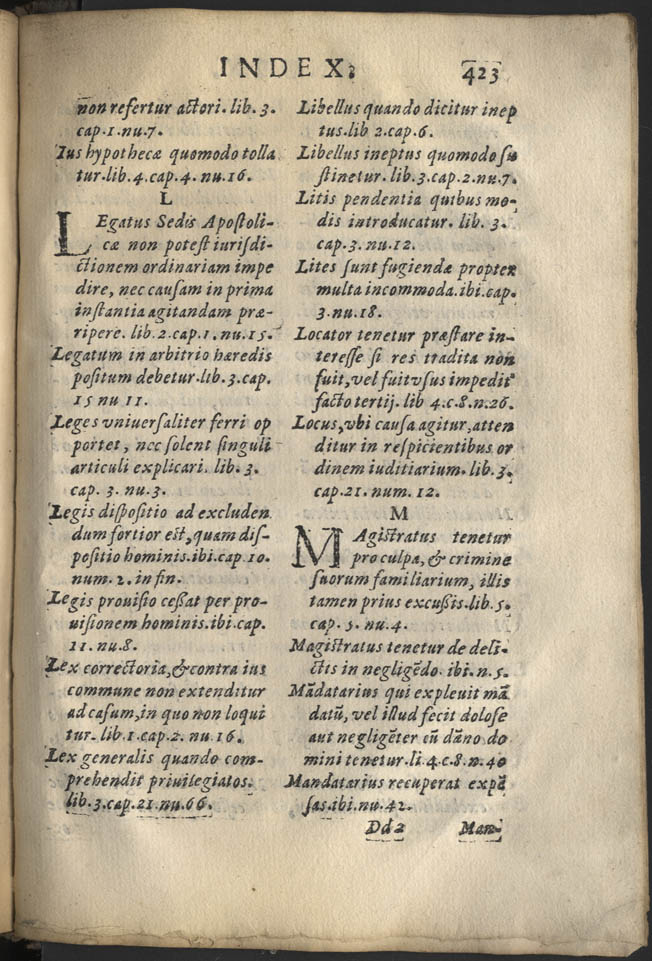 INDEX.
423
non refertur actori. lib. 3.
cap. 1. nu. 7.
Ius hypothecæ quomodo tolla
tur. lib. 4. cap. 4. nu. 16.
L
LEgatus Sedis Apostoli-
cæ non potest iurisdi-
ctionem ordinariam impe
dire, nec causam in prima
instantia agitandam præ-
ripere. lib. 2. cap. 1. nu. 15.
Legatum in arbitrio hæredis
positum debetur. lib. 3. cap.
15 nu 11.
Leges vniuersaliter ferri op
portet, nec solent singuli
articuli explicari. lib. 3.
cap. 3. nu. 3.
Legis dispositio ad excluden
dum fortior est, quam dis-
positio hominis. ibi cap. 10.
num. 2. in fin.
Legis prouisio ceßat per pro-
uisionem hominis. ibi cap.
11. nu. 8.
Lex correctoria, & contra ius
commune non extenditur
ad casum, in quo non loqui
tur. lib. 1. cap. 2. nu. 16.
Lex generalis quando com-
prehendit priuilegiatos.
lib. 3. cap. 21. nu. 66.
Libellus quando dicitur inep
tus. lib 2. cap. 6.
Libellus ineptus quomodo su
stinetur. lib. 3. cap. 2. nu. 7.
Litis pendentia quibus mo-
dis introducatur. lib. 3.
cap. 3. nu. 12.
Lites sunt fugiendæ propter
multa incommoda. ibi cap.
3. nu. 18.
Locator tenetur præstare in-
teresse si res tradita non
fuit, vel fuit vsus impedit9
facto tertij. lib 4. c. 8. n. 26.
Locus, vbi causa agitur, atten
ditur in respicientibus or
dinem iuditiarium. lib. 3.
cap. 21. num. 12.
M
MAgistratus tenetur
pro culpa, & crimine
suorum familiarium, illis
tamen prius excußis. lib. 5.
cap. 5. nu. 4.
Magistratus tenetur de deli-
ctis in negligẽdo. ibi. n. 5.
Mãdatarius qui expleuit mã
datũ, vel illud fecit dolose
aut negligẽter cũ dãno do
mini tenetur. li. 4. c. 8. n. 40
Mandatarius recuperat expẽ
sas. ibi. nu. 42.
Dd 2 Man-